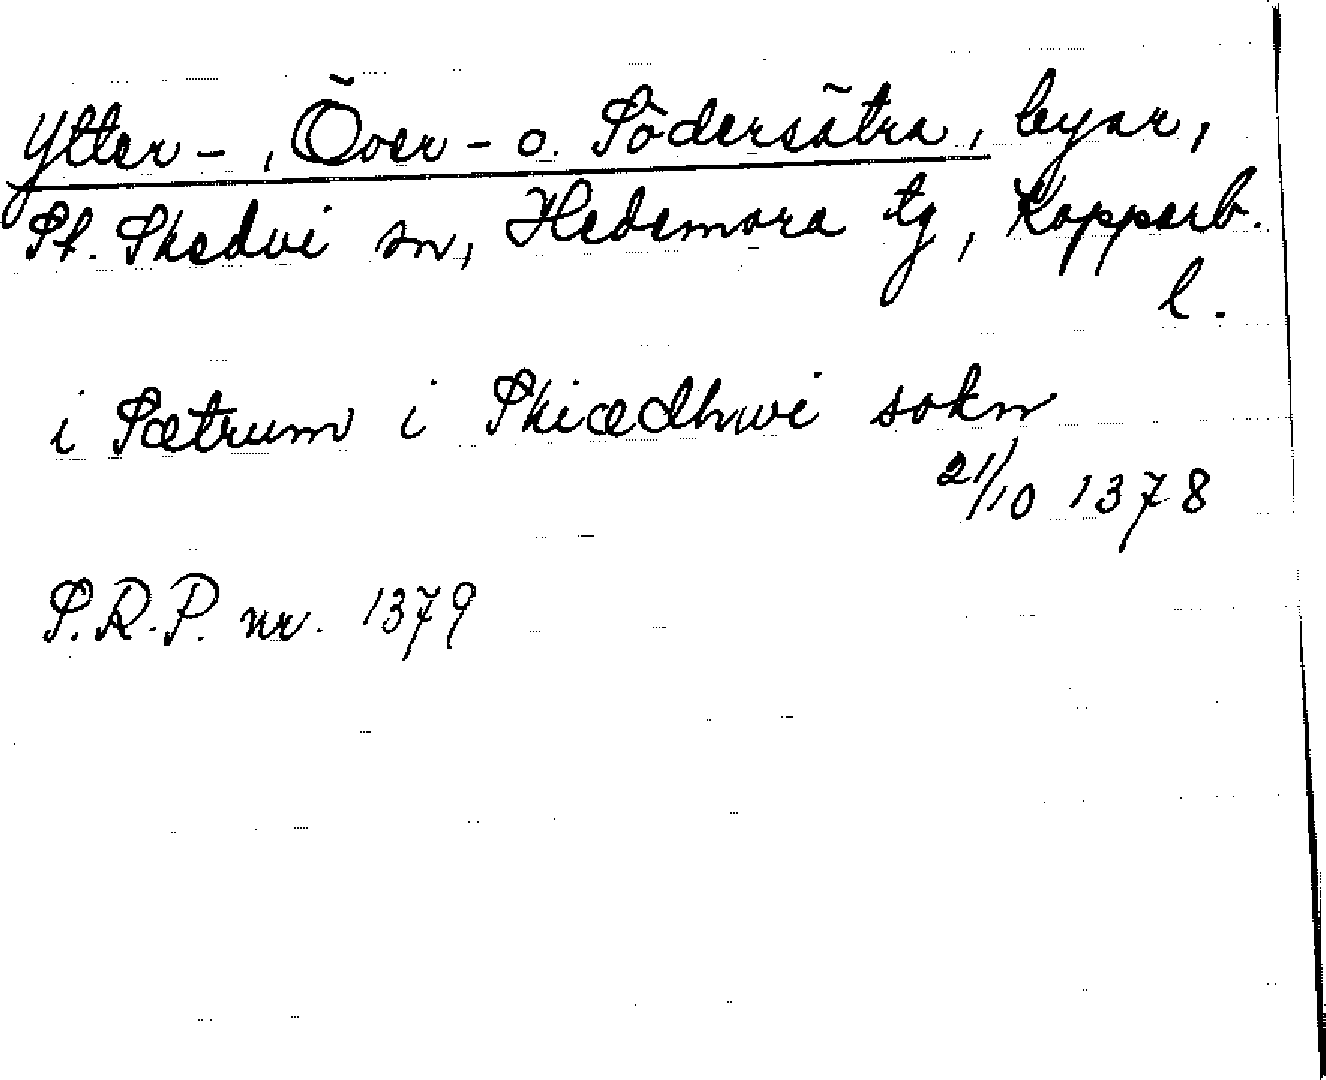 Ytter-, Över- o. Södersätra, byar,
St. Skedvi sn, Hedemora tg, Kopparb.
l.
i Sætrum i Skiædhwi sokn
21/10 1378
S.R.P. nr. 1379